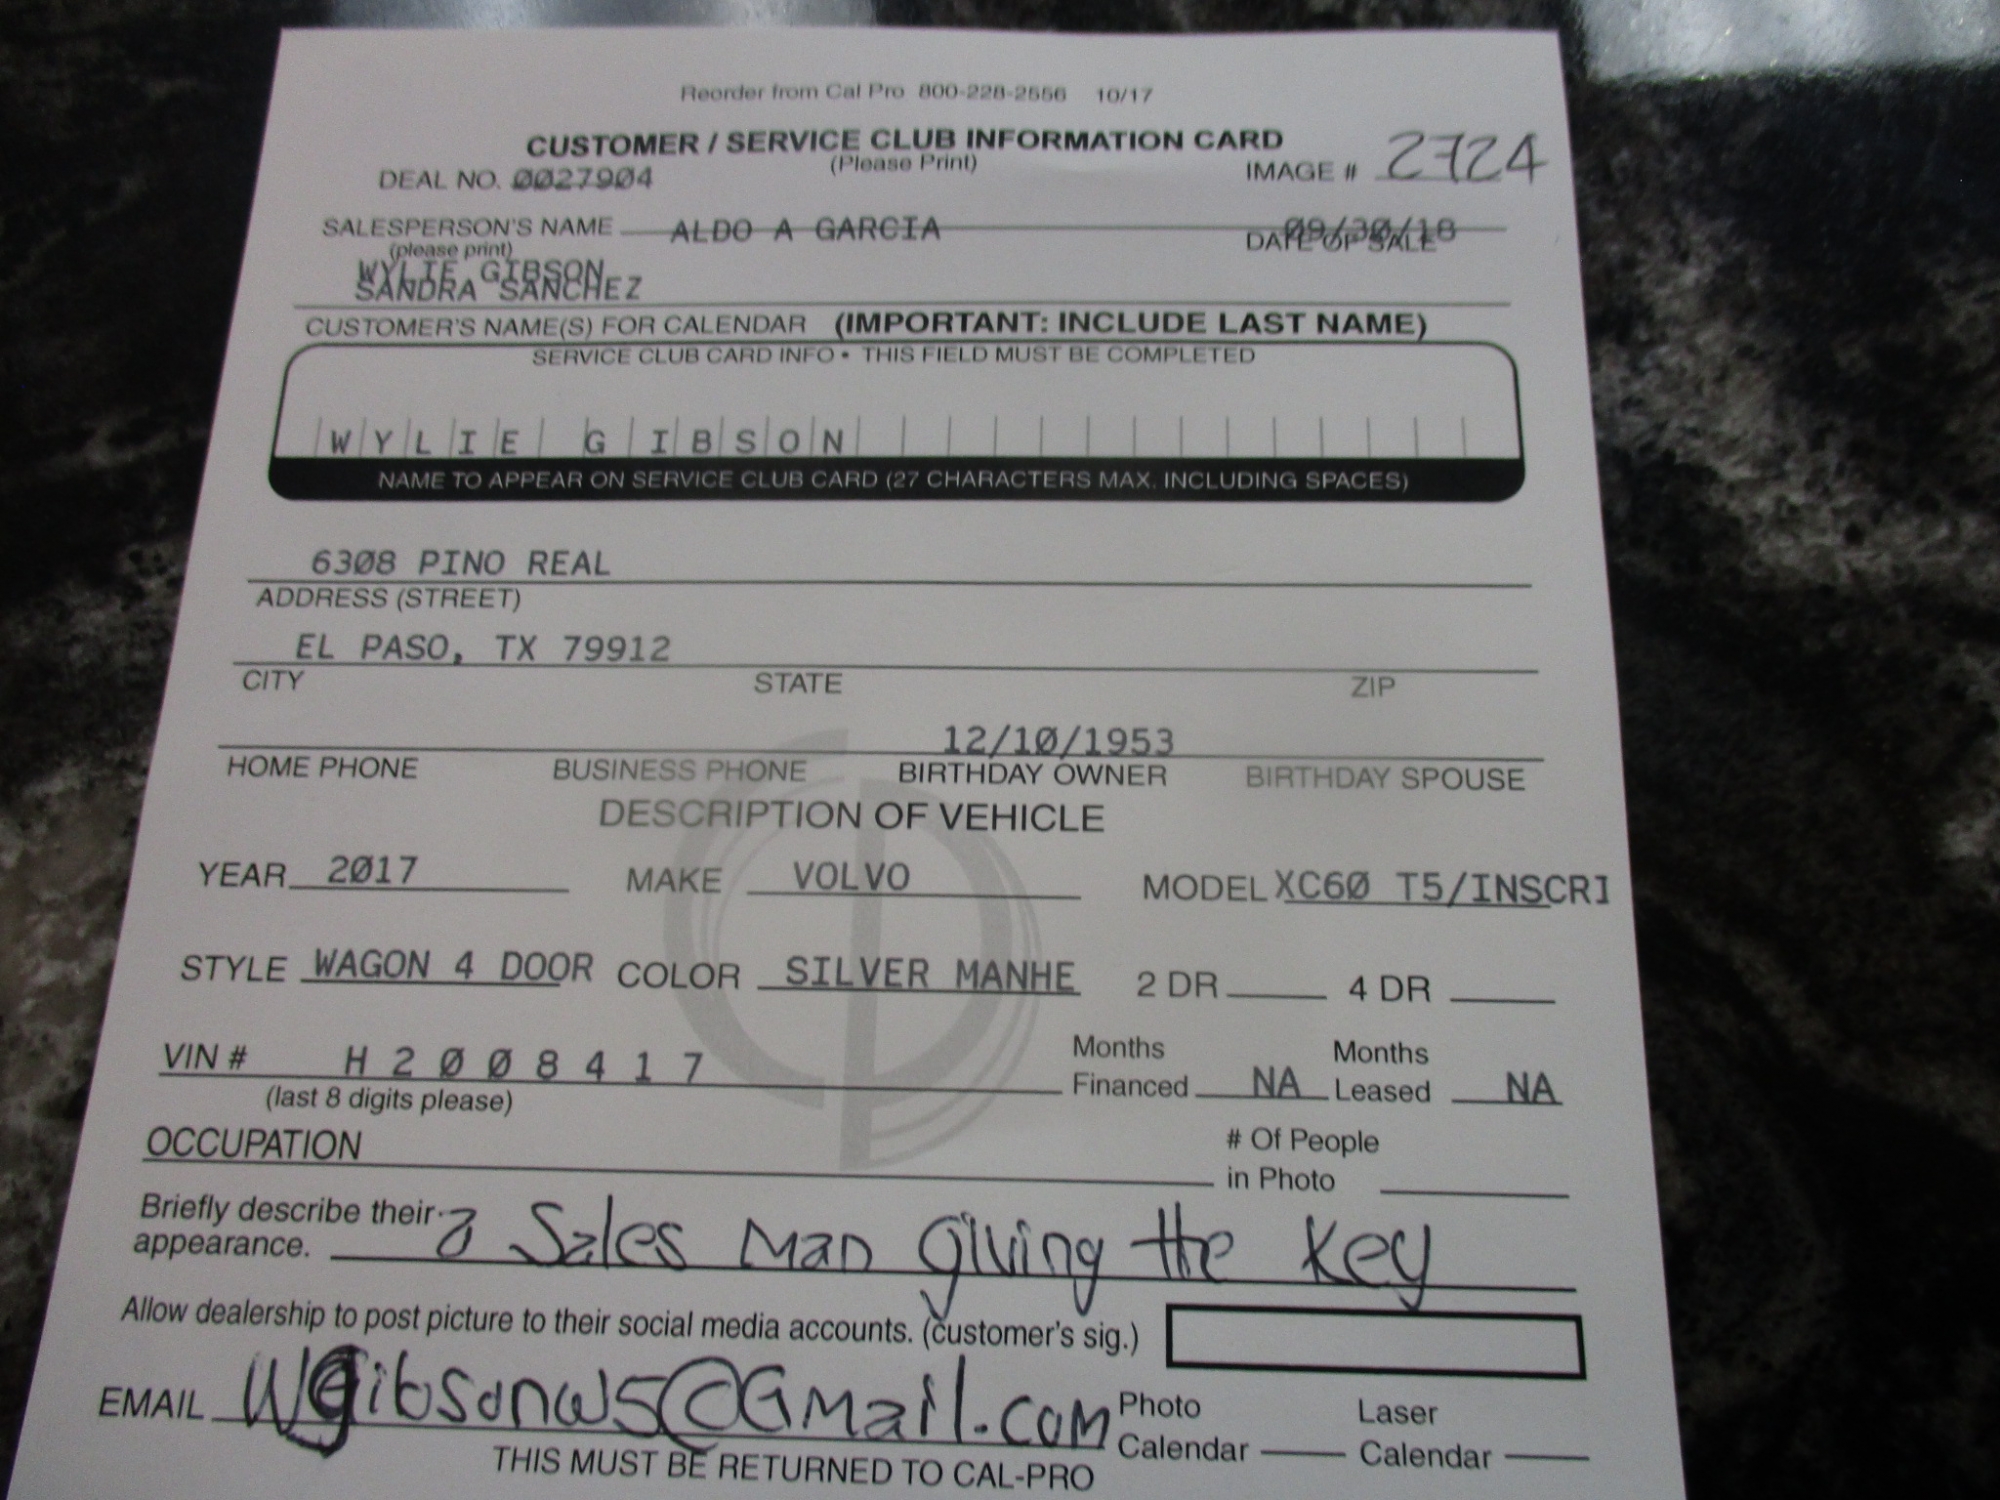 Reorder from Cal Pro 800-228-2556 10/17
CUSTOMER / SERVICE CLUB INFORMATION CARD
(Please Print)
DEAL NO. 0027904 IMAGE # 2724
SALESPERSON'S NAME ALDO A GARCIA DATE OF SALE 09/30/18
(please print)
WYLIE GIBSON
SANDRA SANCHEZ
CUSTOMER'S NAME(S) FOR CALENDAR (IMPORTANT: INCLUDE LAST NAME)
SERVICE CLUB CARD INFO • THIS FIELD MUST BE COMPLETED
WYLIE GIBSON
NAME TO APPEAR ON SERVICE CLUB CARD (27 CHARACTERS MAX. INCLUDING SPACES)
6308 PINO REAL
ADDRESS (STREET)
EL PASO, TX 79912
CITY STATE ZIP
12/10/1953
HOME PHONE BUSINESS PHONE BIRTHDAY OWNER BIRTHDAY SPOUSE
DESCRIPTION OF VEHICLE
YEAR 2017 MAKE VOLVO MODEL XC60 T5/INSCRI
STYLE WAGON 4 DOOR COLOR SILVER MANHE 2 DR 4 DR
VIN # H2008417 Months Financed NA Months Leased NA
(last 8 digits please)
OCCUPATION # Of People in Photo
Briefly describe their appearance. a Sales man giving the key
Allow dealership to post picture to their social media accounts. (customer's sig.)
EMAIL Wgibsonw5@Gmail.com Photo Calendar Laser Calendar
THIS MUST BE RETURNED TO CAL-PRO